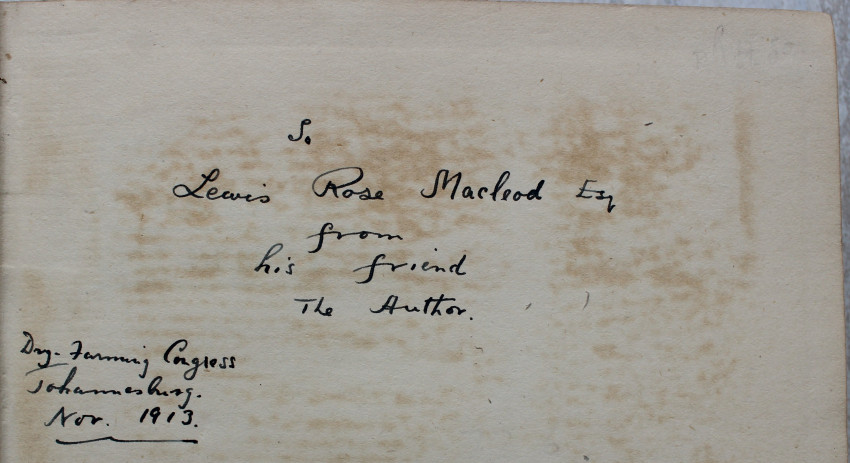 To
Lewis Rose Macleod Esq
from
his friend
The Author.
Dry-Farming Congress
Johannesburg.
Nov. 1913.